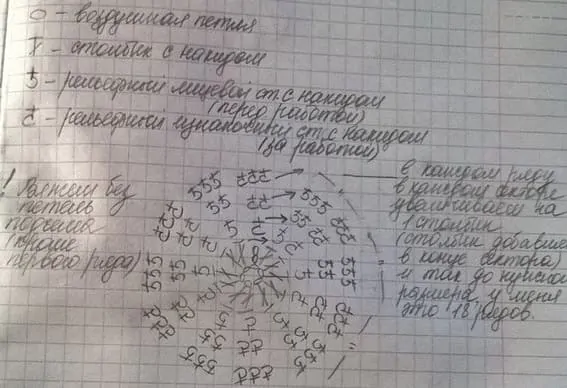 о - воздушная петля
Ŧ - столбик с накидом
5 - рельефный лицевой ст. с накидом
(перед работой)
с̄ - рельефный изнаночный ст. с накидом
(за работой)
! Вяжем без
петель
подъёма
(кроме
первого ряда)
в каждом ряду
в каждом секторе
увеличиваем на
1 столбик
(столбик добавляем
в конце сектора)
и так до нужного
размера, у меня
это 18 рядов.